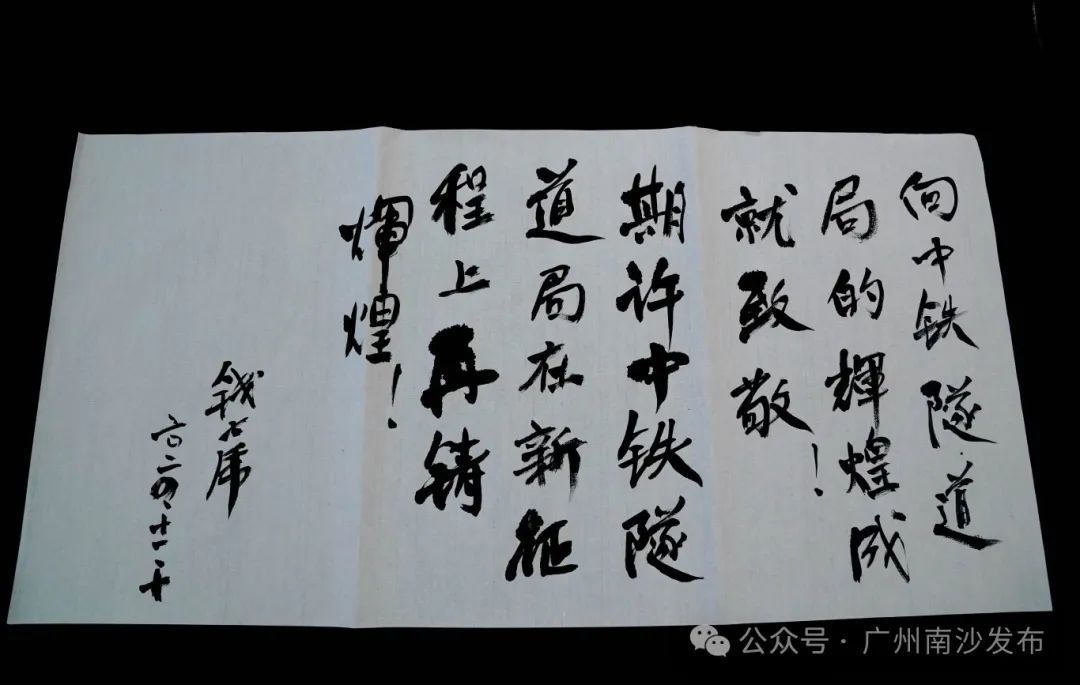 向中铁隧道
局的輝煌成
就致敬！
期许中铁隧
道局在新征
程上再铸
輝煌！
钱七虎
二〇二四、十一、二十
公众号·广州南沙发布